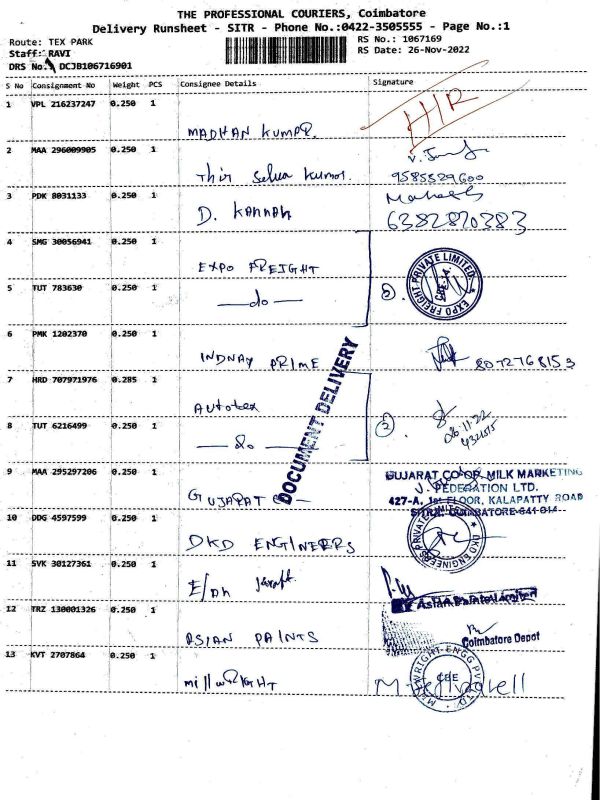 THE PROFESSIONAL COURIERS, Coimbatore
Delivery Runsheet - SITR - Phone No.:0422-3505555 - Page No.:1
Route: TEX PARK
RS No.: 1067169
Staff: RAVI
RS Date: 26-Nov-2022
DRS No. DCJB106716901
S No Consignment No Weight PCS Consignee Details Signature
1 VPL 216237247 0.250 1
MADHAN KUMAR. H/R
2 MAA 296009905 0.250 1
Thir Selva Kumar. 9585529600
3 PDK 8031133 0.250 1
D. KANNAN 6382820383
4 SMG 30056941 0.250 1
EXPO FREIGHT
EXPO FREIGHT PRIVATE LIMITED
5 TUT 783630 0.250 1
—do— 2.
6 PMK 1202370 0.250 1
INDNAY PRIME 8072768153
7 HRD 707971976 0.285 1
Autotex
DOCUMENT DELIVERY
8 TUT 6216499 0.250 1
—do— 2. 26.11.22
9 MAA 295297206 0.250 1
GUJARAT CO-
GUJARAT CO-OP. MILK MARKETING
FEDERATION LTD.
427-A, 1st FLOOR, KALAPATTY ROAD
SITRA, COIMBATORE-641 014
10 DDG 4597599 0.250 1
DKD ENGINEERS
DKD ENGINEERS PRIVATE LIMITED
11 SVK 30127361 0.250 1
Asian Paints Limited
12 TRZ 130001326 0.250 1
ASIAN PAINTS
Coimbatore Depot
13 KVT 2707864 0.250 1
MillWRIGHT
MILLWRIGHT ENGG PVT LTD
CBE